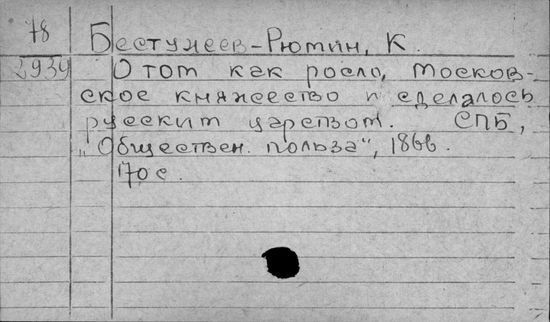 78
Бестужев-Рюмин, К.
2939
О том как росло, Москов-
ское княжество и сделалось
русским царством. СПБ,
„Обществен. польза", 1866.
170 с.